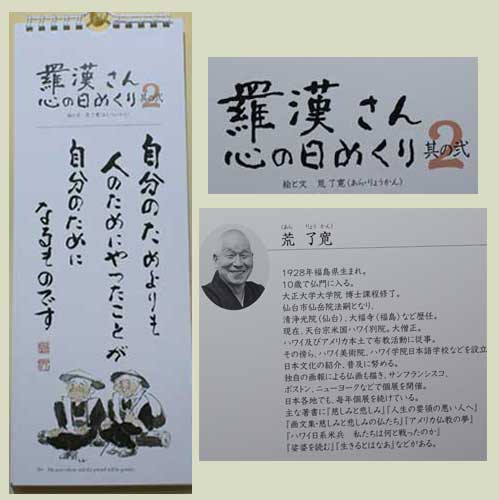 羅漢さん
心の日めくり 其の弐 2
絵と文 荒了寛(あら・りょうかん)
自分のためよりも
人のためにやったことが
自分のために
なるものです
羅漢さん
心の日めくり 其の弐 2
絵と文 荒了寛(あら・りょうかん)
(あら りょう かん)
荒 了寛
1928年福島県生まれ。
10歳で仏門に入る。
大正大学大学院 博士課程修了。
仙台市仙岳院法嗣となり、
清浄光院(仙台)、大福寺(福島)など歴任。
現在、天台宗米国ハワイ別院。大僧正。
ハワイ及びアメリカ本土で布教活動に従事。
その傍ら、ハワイ美術院、ハワイ学院日本語学校などを設立
日本文化の紹介、普及に努める。
独自の画報による仏画も描き、サンフランシスコ、
ボストン、ニューヨークなどで個展を開催。
日本各地でも、毎年個展を続けている。
主な著書に『慈しみと悲しみ』『人生の要領の悪い人へ』
『画文集・慈しみと悲しみの仏たち』『アメリカ仏教の夢』
『ハワイ日系米兵 私たちは何と戦ったのか』
『娑婆を読む』『生きるとはなあ』などがある。